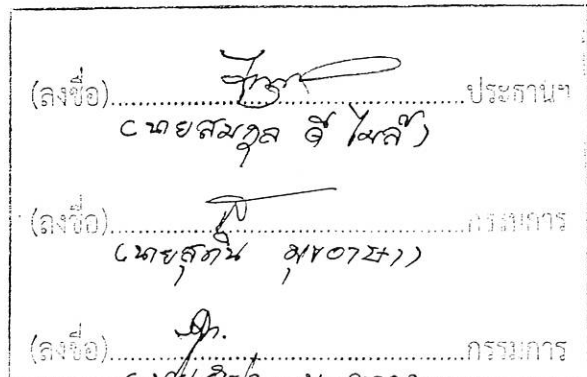 (ลงชื่อ)..............................ประธานฯ
(นายสมกุล ดี ไมล์)
(ลงชื่อ)..............................กรรมการ
(นายสุทิน มุขอาษา)
(ลงชื่อ)..............................กรรมการ